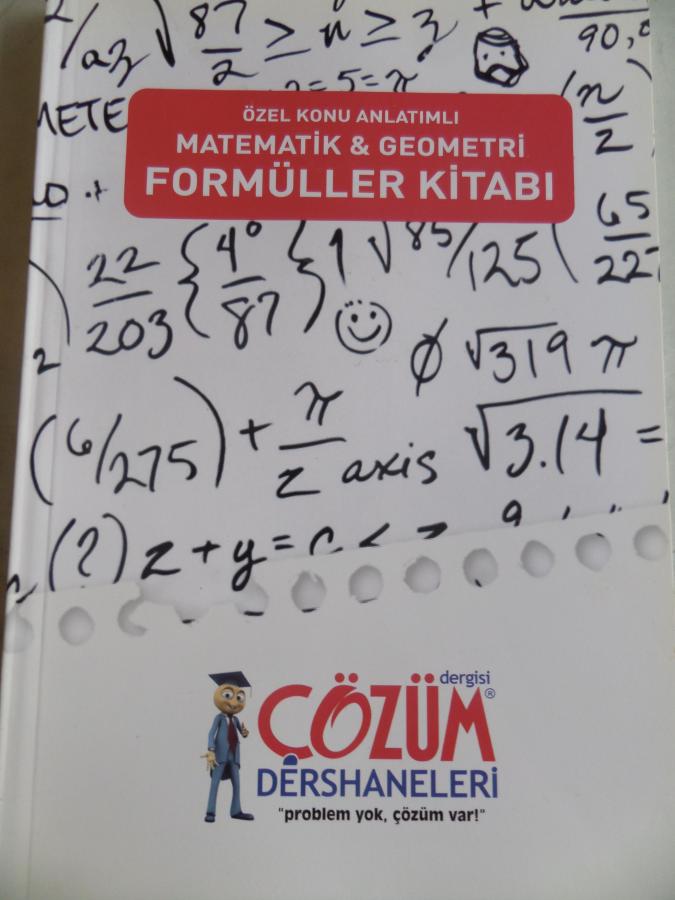 87/2 ≥ n ≥ 3
90,
METE
2=5=π
ÖZEL KONU ANLATIMLI
MATEMATİK & GEOMETRİ
FORMÜLLER KİTABI
n/2
22/203 {4°/87} 1 √85/125 (65/22
2
φ √319 π
(6/275) + π/2 axis √3.14 =
(2) z + y =
dergisi
ÇÖZÜM®
DERSHANELERİ
"problem yok, çözüm var!"